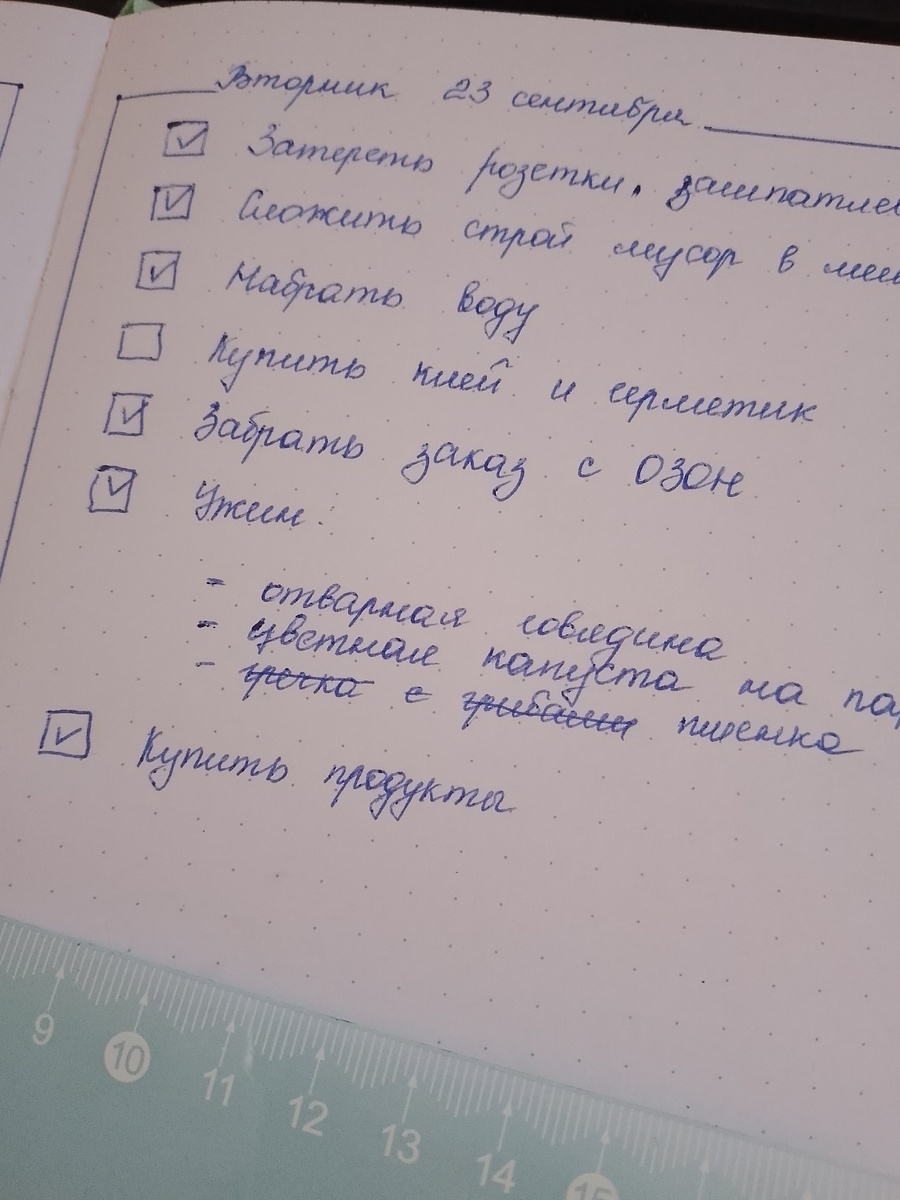 Вторник 23 сентября
Затереть розетки, зашпатлев
Сложить строй мусор в меш
Набрать воду
Купить клей и герметик
Забрать заказ с ОЗОН
Ужин:
- отварная говядина
- цветная капуста на пар
- гречка с грибами пшенка
Купить продукты
9 10 11 12 13 14 15